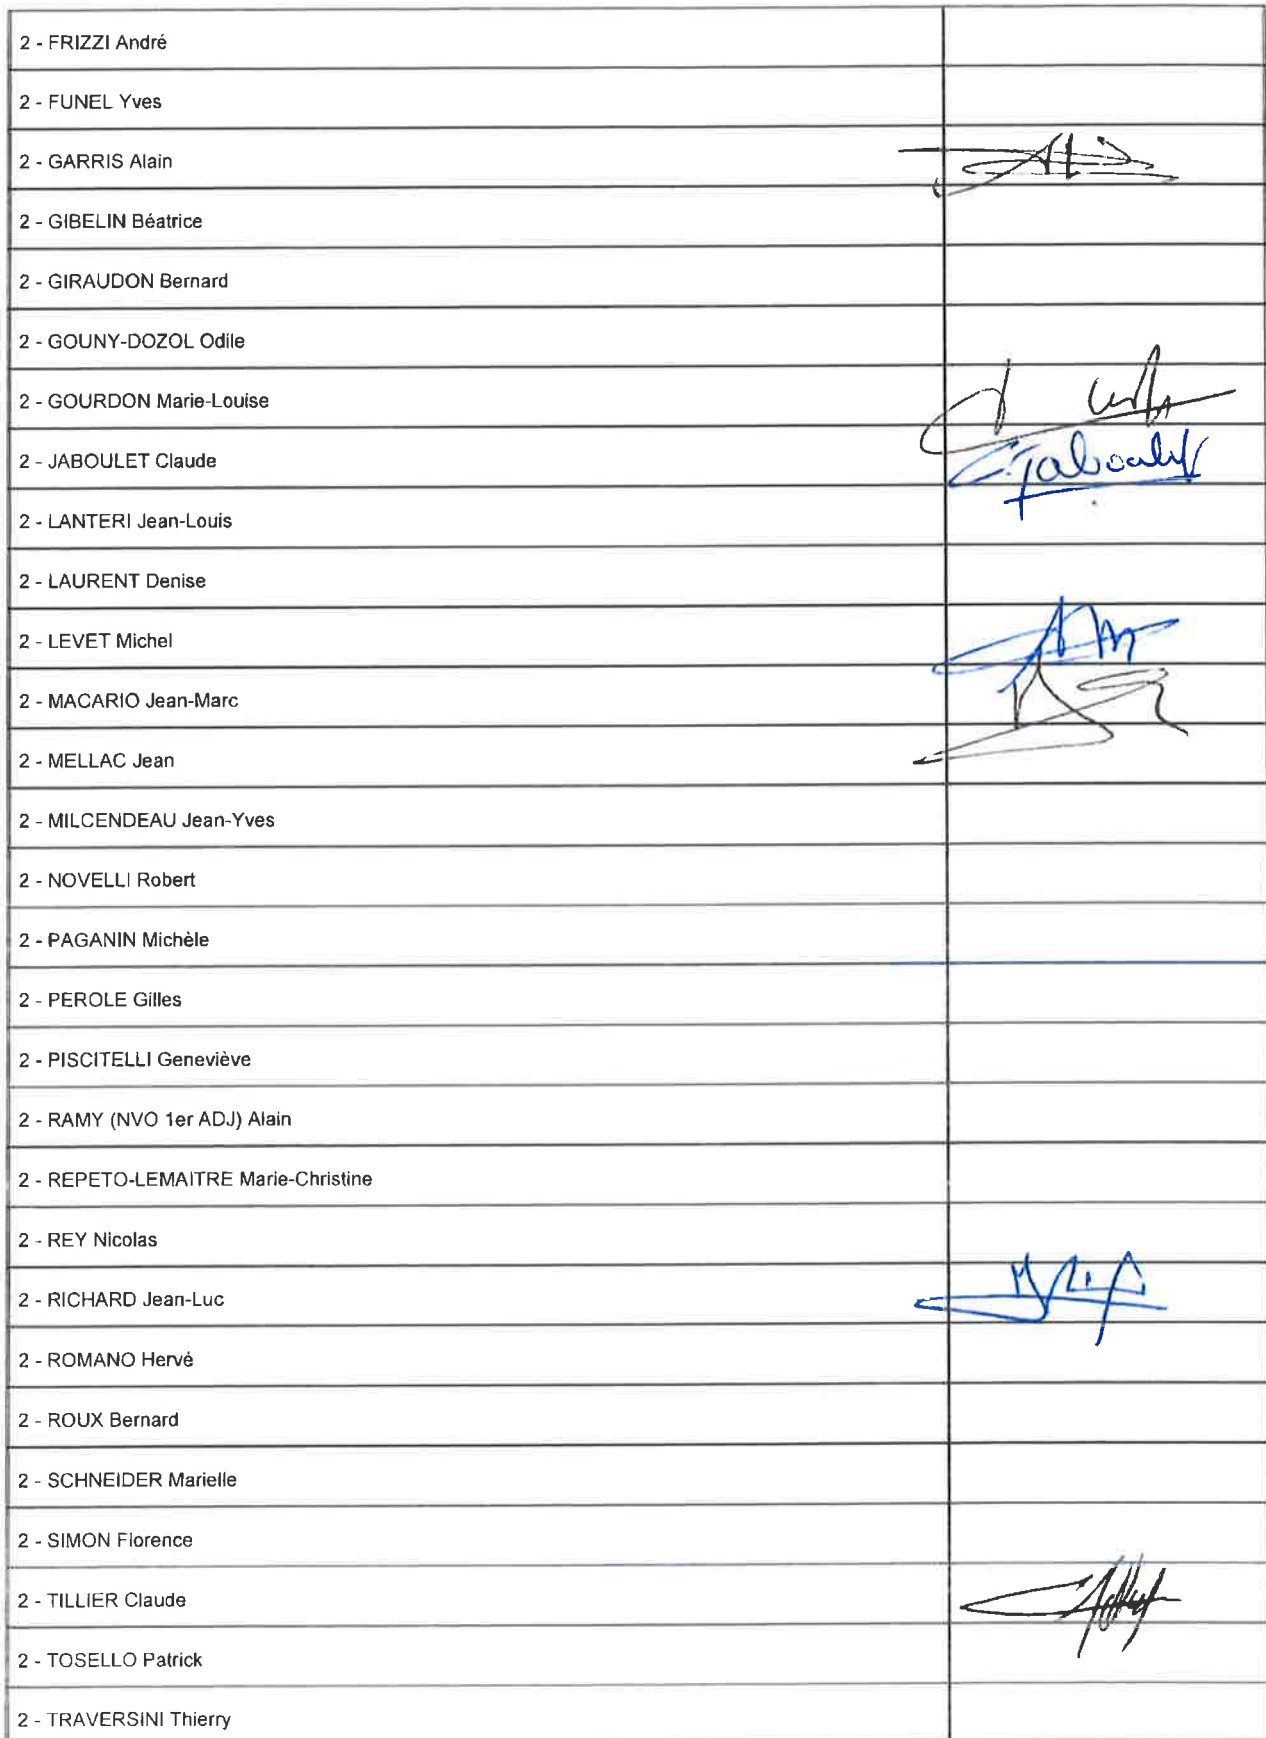 2 - FRIZZI André
2 - FUNEL Yves
2 - GARRIS Alain
2 - GIBELIN Béatrice
2 - GIRAUDON Bernard
2 - GOUNY-DOZOL Odile
2 - GOURDON Marie-Louise
2 - JABOULET Claude
2 - LANTERI Jean-Louis
2 - LAURENT Denise
2 - LEVET Michel
2 - MACARIO Jean-Marc
2 - MELLAC Jean
2 - MILCENDEAU Jean-Yves
2 - NOVELLI Robert
2 - PAGANIN Michèle
2 - PEROLE Gilles
2 - PISCITELLI Geneviève
2 - RAMY (NVO 1er ADJ) Alain
2 - REPETO-LEMAITRE Marie-Christine
2 - REY Nicolas
2 - RICHARD Jean-Luc
2 - ROMANO Hervé
2 - ROUX Bernard
2 - SCHNEIDER Marielle
2 - SIMON Florence
2 - TILLIER Claude
2 - TOSELLO Patrick
2 - TRAVERSINI Thierry